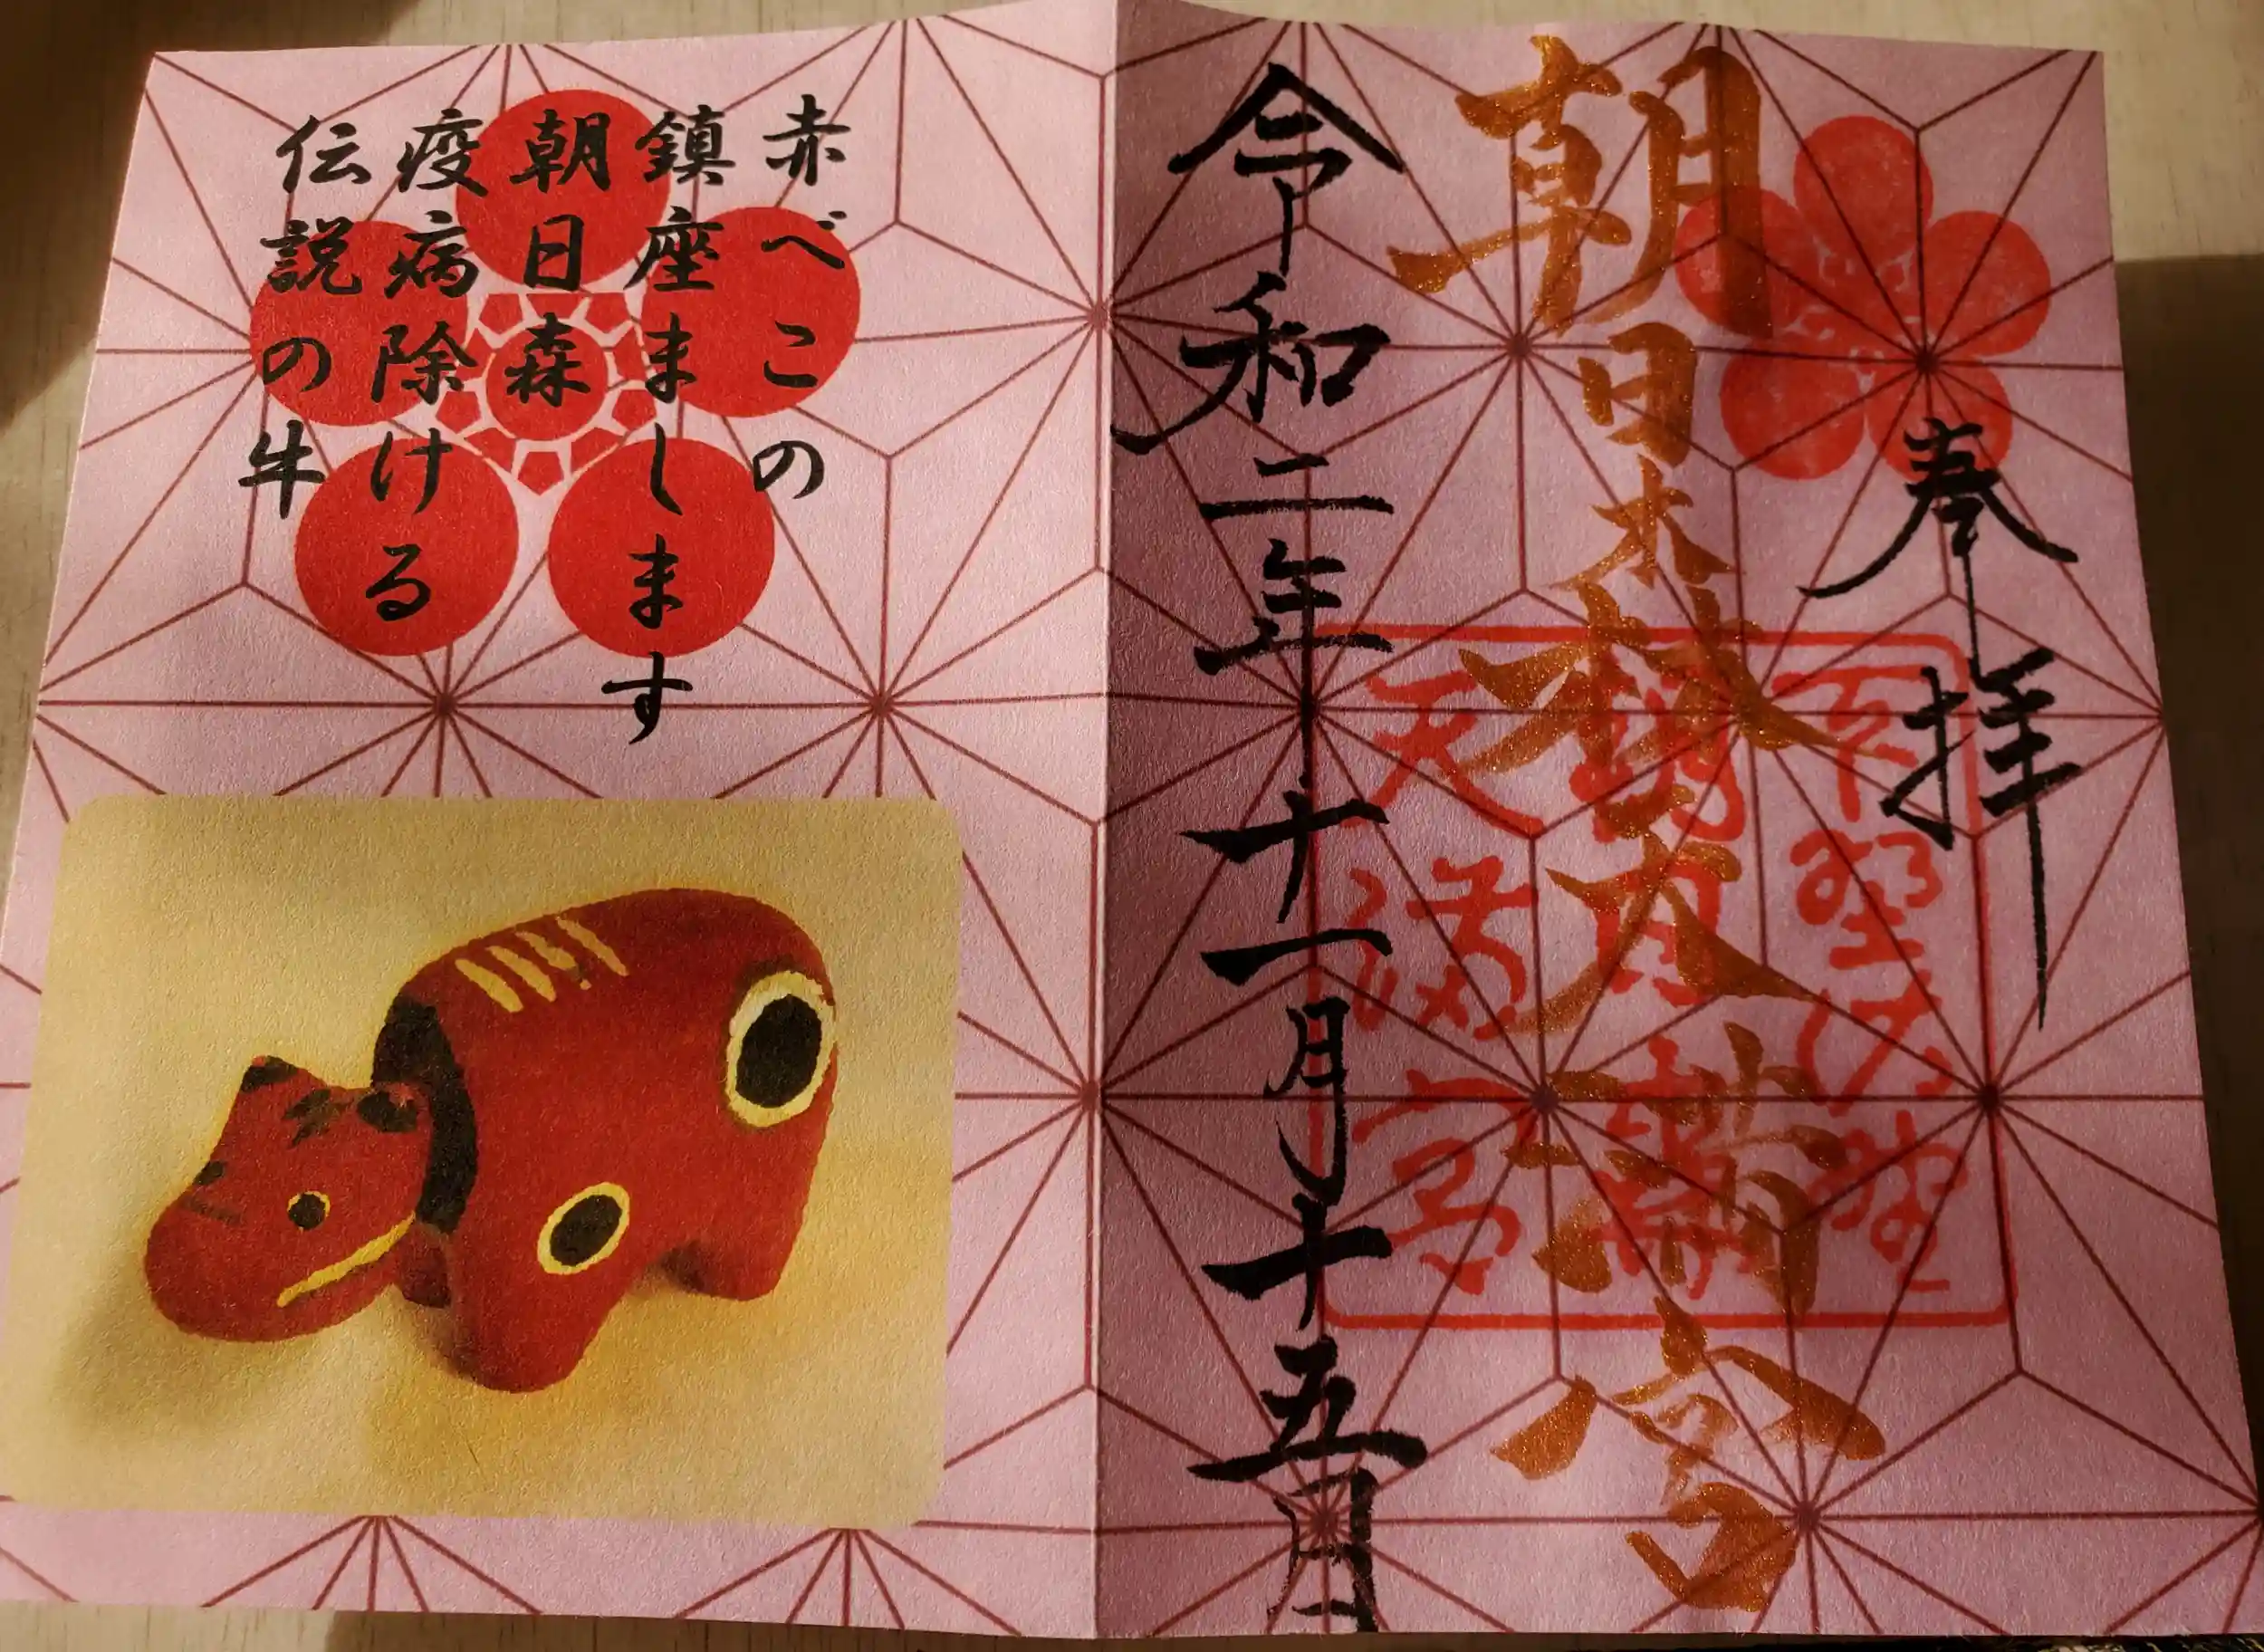 奉拝
朝日森天満宮
令和二年十一月十五日
天満宮
赤べこの
鎮座まします
朝日森
疫病除ける
伝説の牛